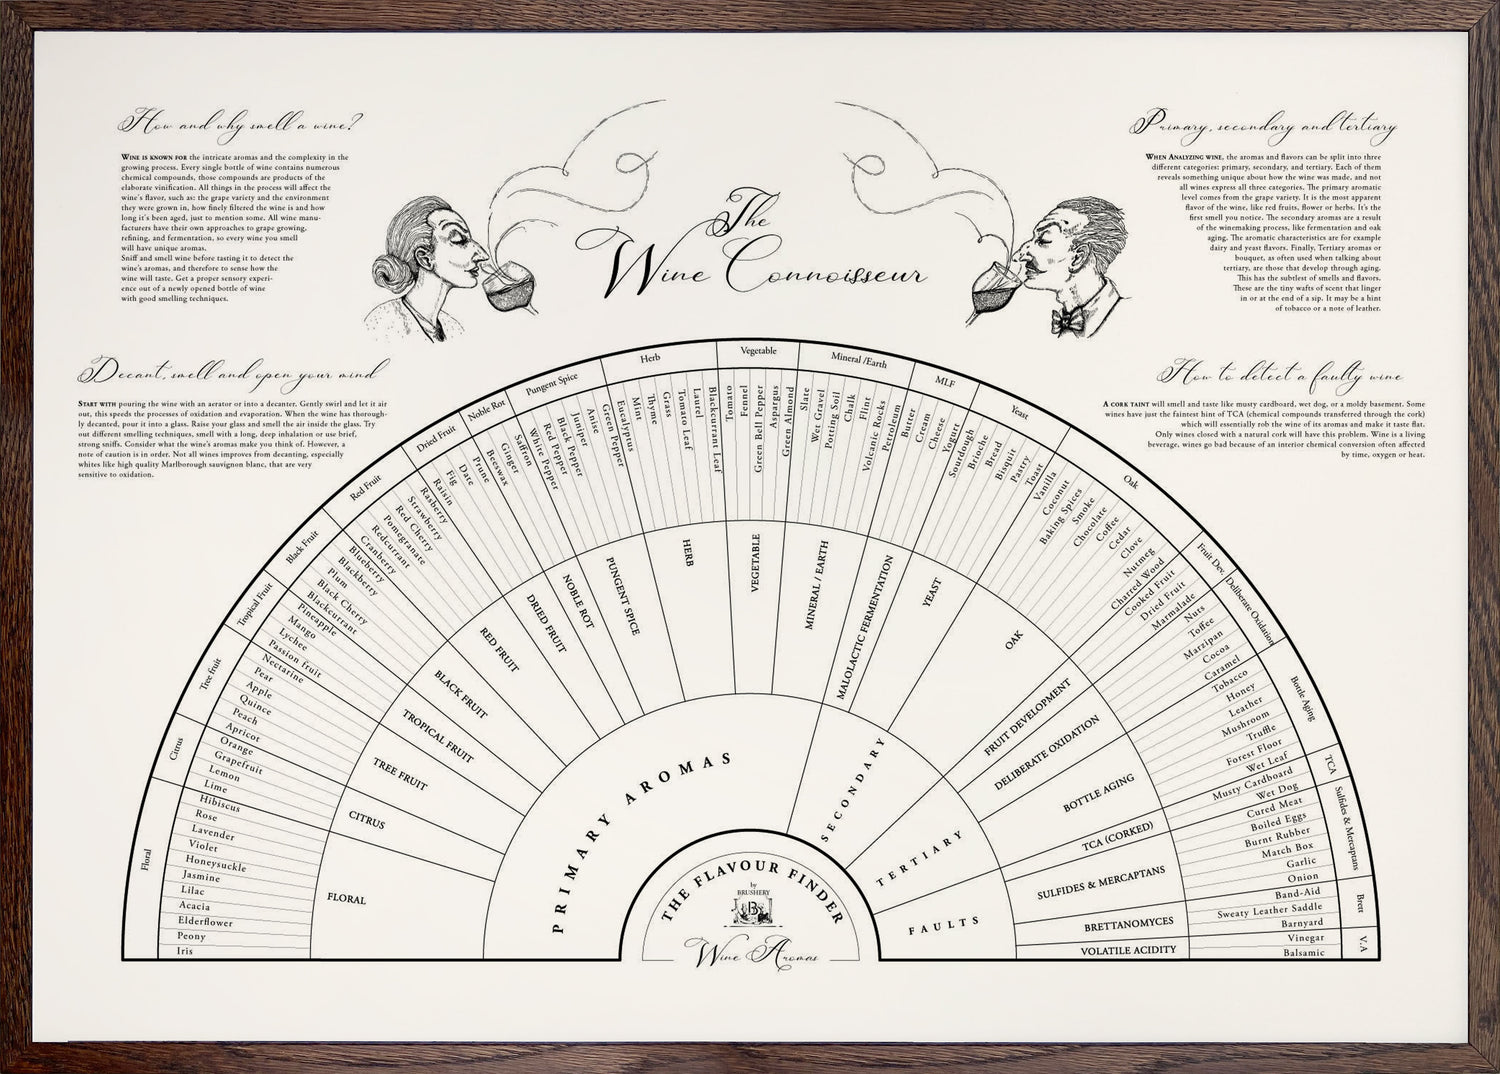 How and why smell a wine?
WINE IS KNOWN FOR the intricate aromas and the complexity in the
growing process. Every single bottle of wine contains numerous
chemical compounds, those compounds are products of the
elaborate vinification. All things in the process will affect the
wine's flavor, such as: the grape variety and the environment
they were grown in, how finely filtered the wine is and how
long it's been aged, just to mention some. All wine manu-
facturers have their own approaches to grape growing,
refining, and fermentation, so every wine you smell
will have unique aromas.
Sniff and smell wine before tasting it to detect the
wine's aromas, and therefore to sense how the
wine will taste. Get a proper sensory experi-
ence out of a newly opened bottle of wine
with good smelling techniques.
The
Wine Connoisseur
Primary, secondary and tertiary
WHEN ANALYZING WINE, the aromas and flavors can be split into three
different categories: primary, secondary, and tertiary. Each of them
reveals something unique about how the wine was made, and not
all wines express all three categories. The primary aromatic
level comes from the grape variety. It is the most apparent
flavor of the wine, like red fruits, flower or herbs. It's the
first smell you notice. The secondary aromas are a result
of the winemaking process, like fermentation and oak
aging. The aromatic characteristics are for example
dairy and yeast flavors. Finally, Tertiary aromas or
bouquet, as often used when talking about
tertiary, are those that develop through aging.
This has the subtlest of smells and flavors.
These are the tiny wafts of scent that linger
in or at the end of a sip. It may be a hint
of tobacco or a note of leather.
Decant, smell and open your mind
START WITH pouring the wine with an aerator or into a decanter. Gently swirl and let it air
out, this speeds the processes of oxidation and evaporation. When the wine has thorough-
ly decanted, pour it into a glass. Raise your glass and smell the air inside the glass. Try
out different smelling techniques, smell with a long, deep inhalation or use brief,
strong sniffs. Consider what the wine's aromas make you think of. However, a
note of caution is in order. Not all wines improves from decanting, especially
whites like high quality Marlborough sauvignon blanc, that are very
sensitive to oxidation.
How to detect a faulty wine
A CORK TAINT will smell and taste like musty cardboard, wet dog, or a moldy basement. Some
wines have just the faintest hint of TCA (chemical compounds transferred through the cork)
which will essentially rob the wine of its aromas and make it taste flat.
Only wines closed with a natural cork will have this problem. Wine is a living
beverage, wines go bad because of an interior chemical conversion often affected
by time, oxygen or heat.
Floral
Citrus
Tree fruit
Tropical Fruit
Black Fruit
Red Fruit
Dried Fruit
Noble Rot
Pungent Spice
Herb
Vegetable
Mineral /Earth
MLF
Yeast
Oak
Fruit Dev.
Deliberate Oxidation
Bottle Aging
TCA
Sulfides & Mercaptans
Brett
V.A
Iris
Peony
Elderflower
Acacia
Lilac
Jasmine
Honeysuckle
Violet
Lavender
Rose
Hibiscus
Lime
Lemon
Grapefruit
Orange
Apricot
Peach
Quince
Apple
Pear
Nectarine
Passion fruit
Lychee
Mango
Pineapple
Blackcurrant
Black Cherry
Plum
Blackberry
Blueberry
Cranberry
Redcurrant
Pomegranate
Red Cherry
Strawberry
Rasberry
Raisin
Fig
Date
Prune
Beeswax
Ginger
Saffron
White Pepper
Red Pepper
Black Pepper
Juniper
Anise
Green Pepper
Eucalyptus
Mint
Thyme
Grass
Tomato Leaf
Laurel
Blackcurrant Leaf
Tomato
Fennel
Green Bell Pepper
Aspargus
Green Almond
Slate
Wet Gravel
Potting Soil
Chalk
Flint
Volcanic Rocks
Petroleum
Butter
Cream
Cheese
Yogurt
Sourdough
Brioche
Bread
Bisquit
Pastry
Toast
Vanilla
Coconut
Baking Spices
Smoke
Chocolate
Coffee
Cedar
Clove
Nutmeg
Charred Wood
Cooked Fruit
Dried Fruit
Marmalade
Nuts
Toffee
Marzipan
Cocoa
Caramel
Tobacco
Honey
Leather
Mushroom
Truffle
Forest Floor
Wet Leaf
Musty Cardboard
Wet Dog
Cured Meat
Boiled Eggs
Burnt Rubber
Match Box
Garlic
Onion
Band-Aid
Sweaty Leather Saddle
Barnyard
Vinegar
Balsamic
FLORAL
CITRUS
TREE FRUIT
TROPICAL FRUIT
BLACK FRUIT
RED FRUIT
DRIED FRUIT
NOBLE ROT
PUNGENT SPICE
HERB
VEGETABLE
MINERAL / EARTH
MALOLACTIC FERMENTATION
YEAST
OAK
FRUIT DEVELOPMENT
DELIBERATE OXIDATION
BOTTLE AGING
TCA (CORKED)
SULFIDES & MERCAPTANS
BRETTANOMYCES
VOLATILE ACIDITY
PRIMARY AROMAS
SECONDARY
TERTIARY
FAULTS
THE FLAVOUR FINDER
by
BRUSHERY
B
Wine Aromas